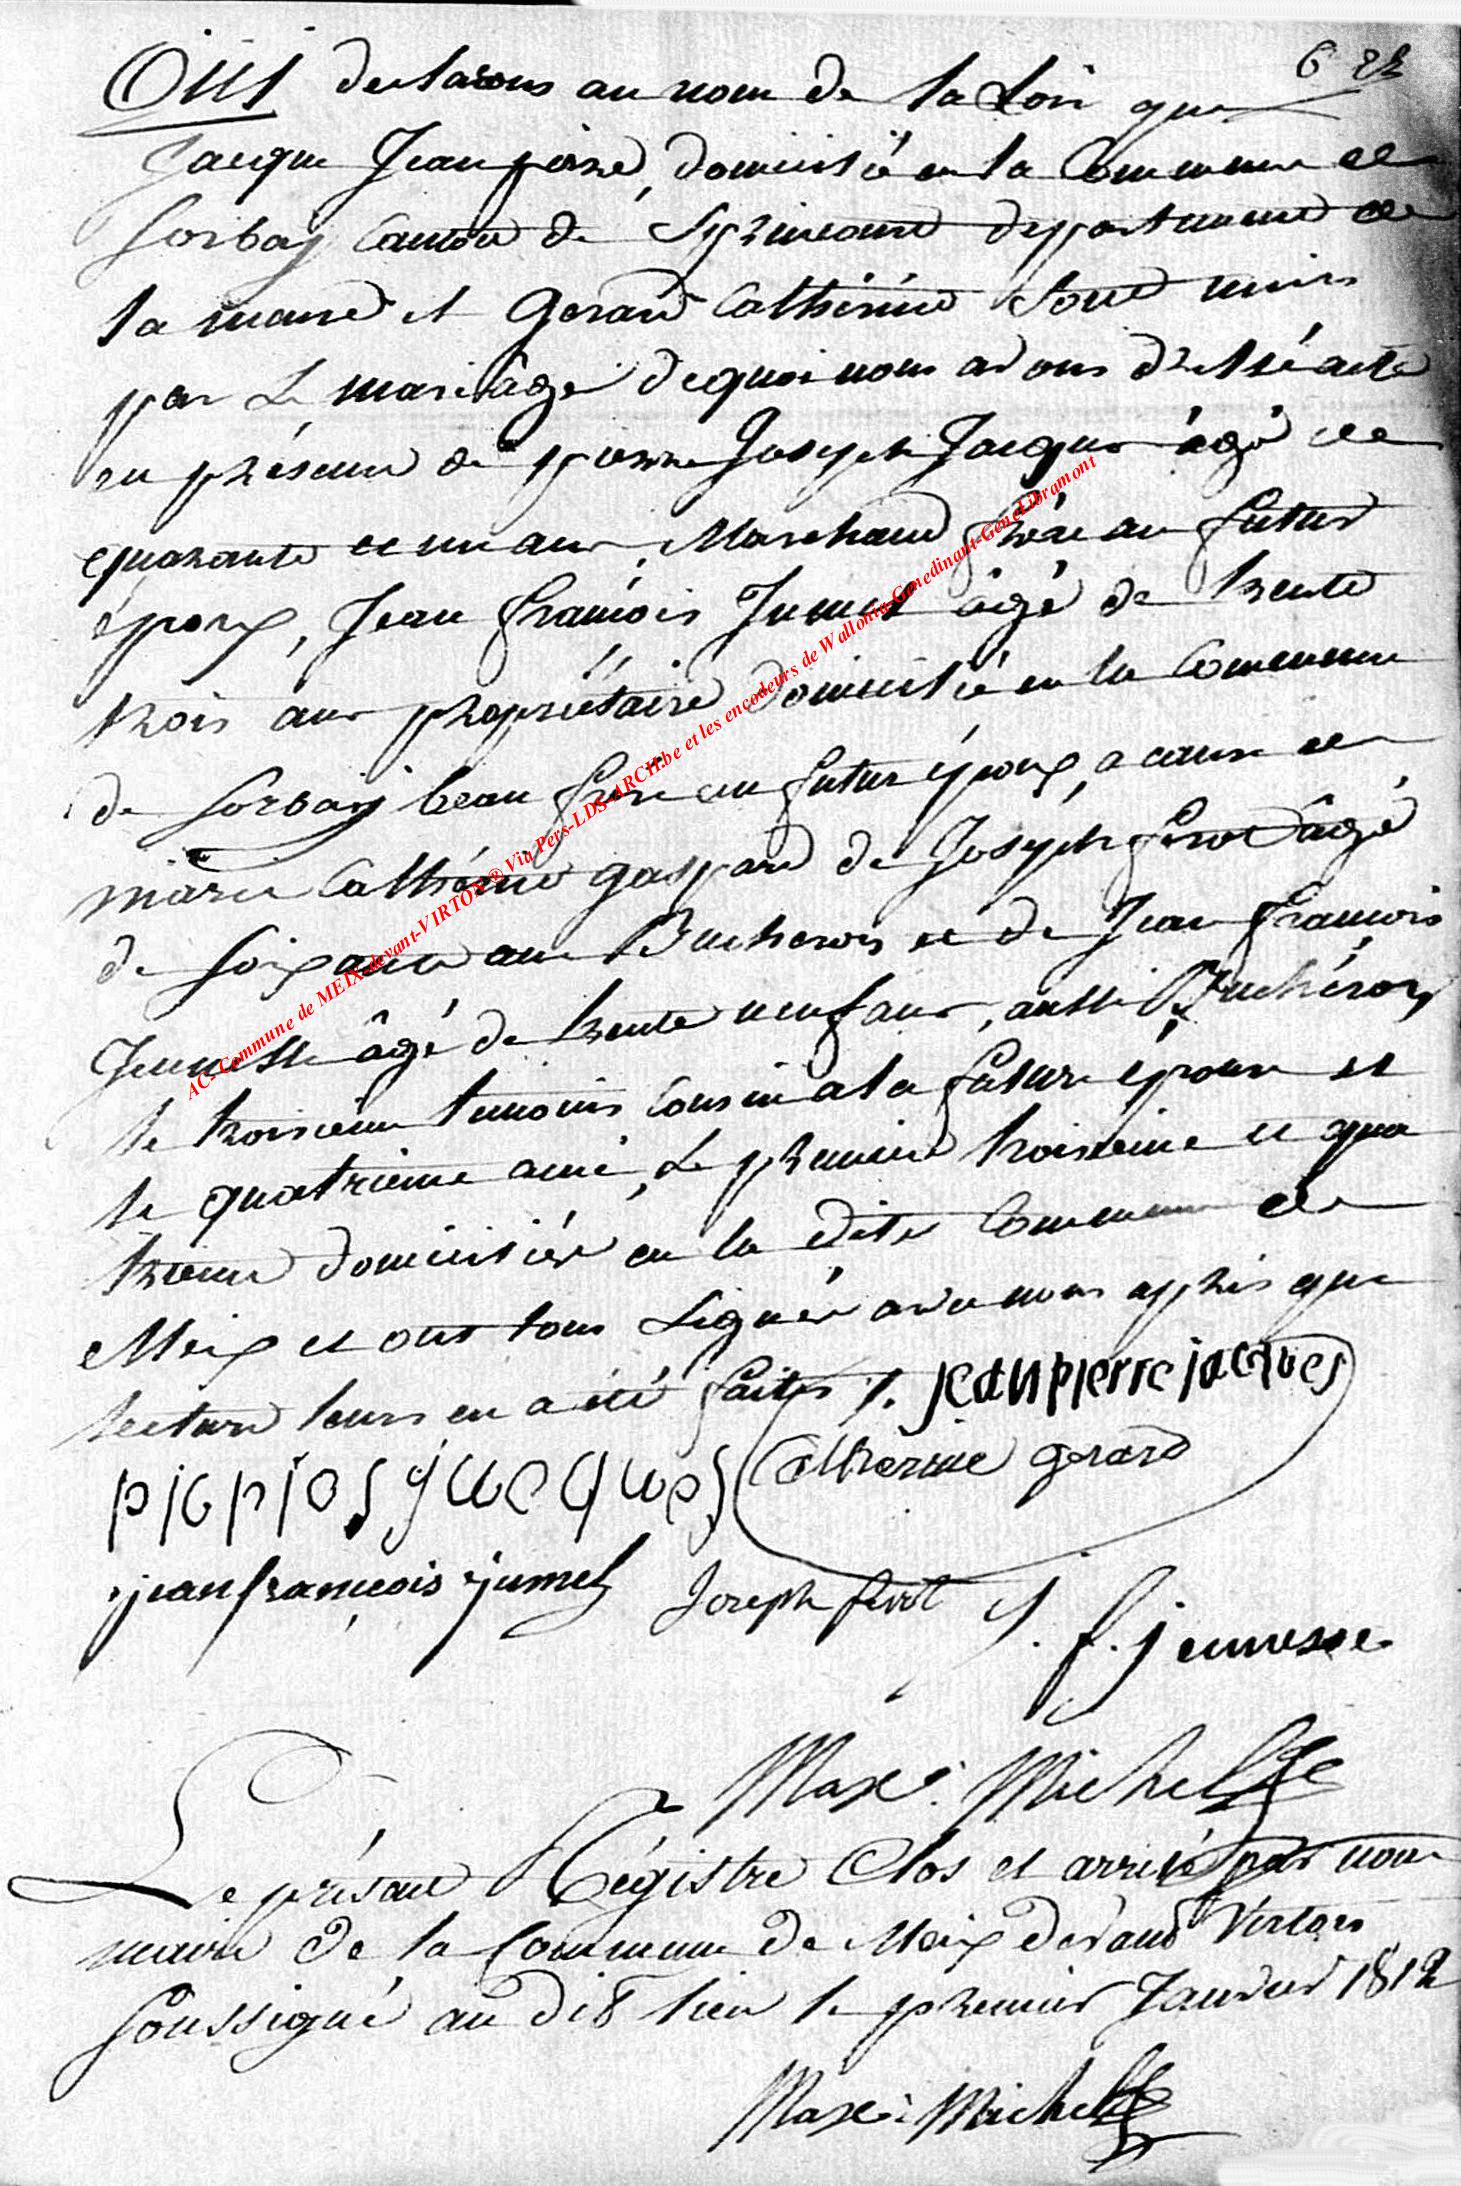 Oui declarons au nom de la Loi que
Jacque Jean pierre, domicilié en la Commune de
Sorbay Canton de departement de
la et Gerard Catherine Sont unis
par Le mariâge dequoi nous avons dressé acte
en présence de pierre Joseph Jacques âgé de
quarante et un ans, Marchand frère au futur
époux, Jean françois Jumel âgé de trente
trois ans propriétaire domicilié en la Commune
de Sorbay beau frere au futur époux, a cause de
marie Catherine gaspard de Joseph ferot âgé
de Soixante ans Bucheron et de Jean françois
Jeunesse âgé de trente neuf ans, aussi Buchéron
le troisieme temoins Cousin a la future epouse et
le quatrieme ami, Le premier troisieme et qua
trieme domiciliés en la dite Commune de
Meix et ont tous Signés avec nous après que
lecture leurs en a été faite ./. jean pierre jacques
Catherine gerard
pierr jos jacques
jean françois jumel Joseph ferot J. f. jeunesse
Maxe: Michel
Le présent Régistre Clos et arrêté par nous
maire de la Commune de Meix devant Virton
Soussigné au dit lieu le premier Janvier 1812
Maxe: Michel
AC- Commune de MEIX-devant-VIRTON® Via Pers-LDS-ARCH.be et les encodeurs de Wallonia-Genedinant-GeneLibramont